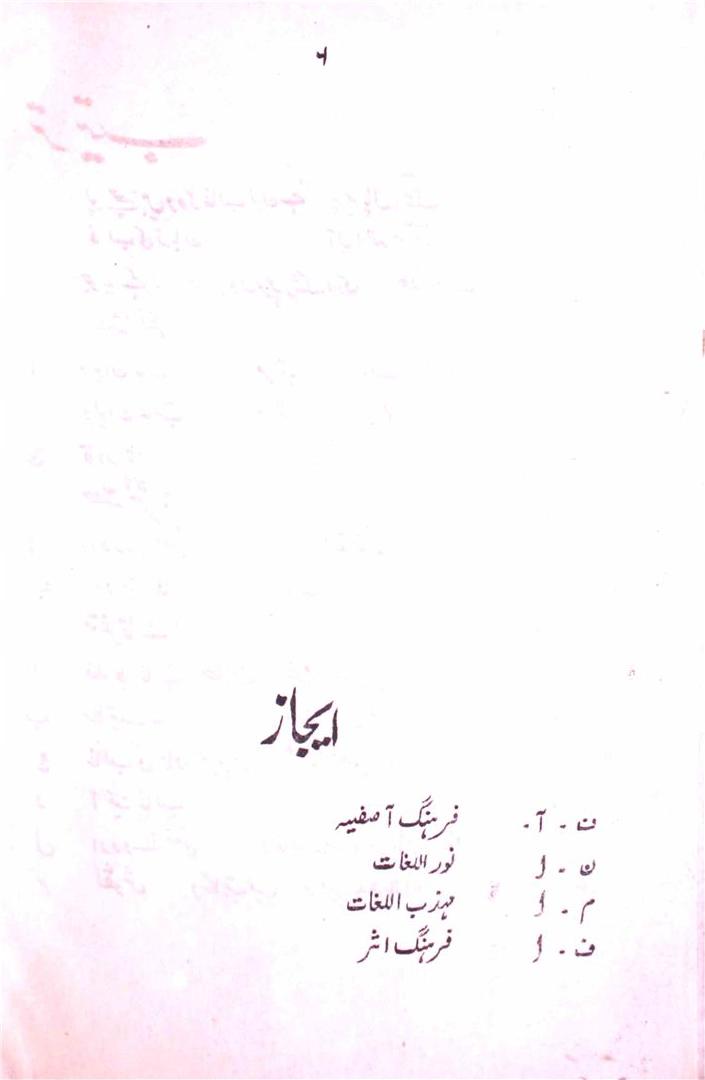 ۶
ایجاز
ف ۔ آ ۔ فرہنگ آصفیہ
ن ۔ ا نور اللغات
م ۔ ا مہذب اللغات
ف ۔ ا فرہنگ اثر